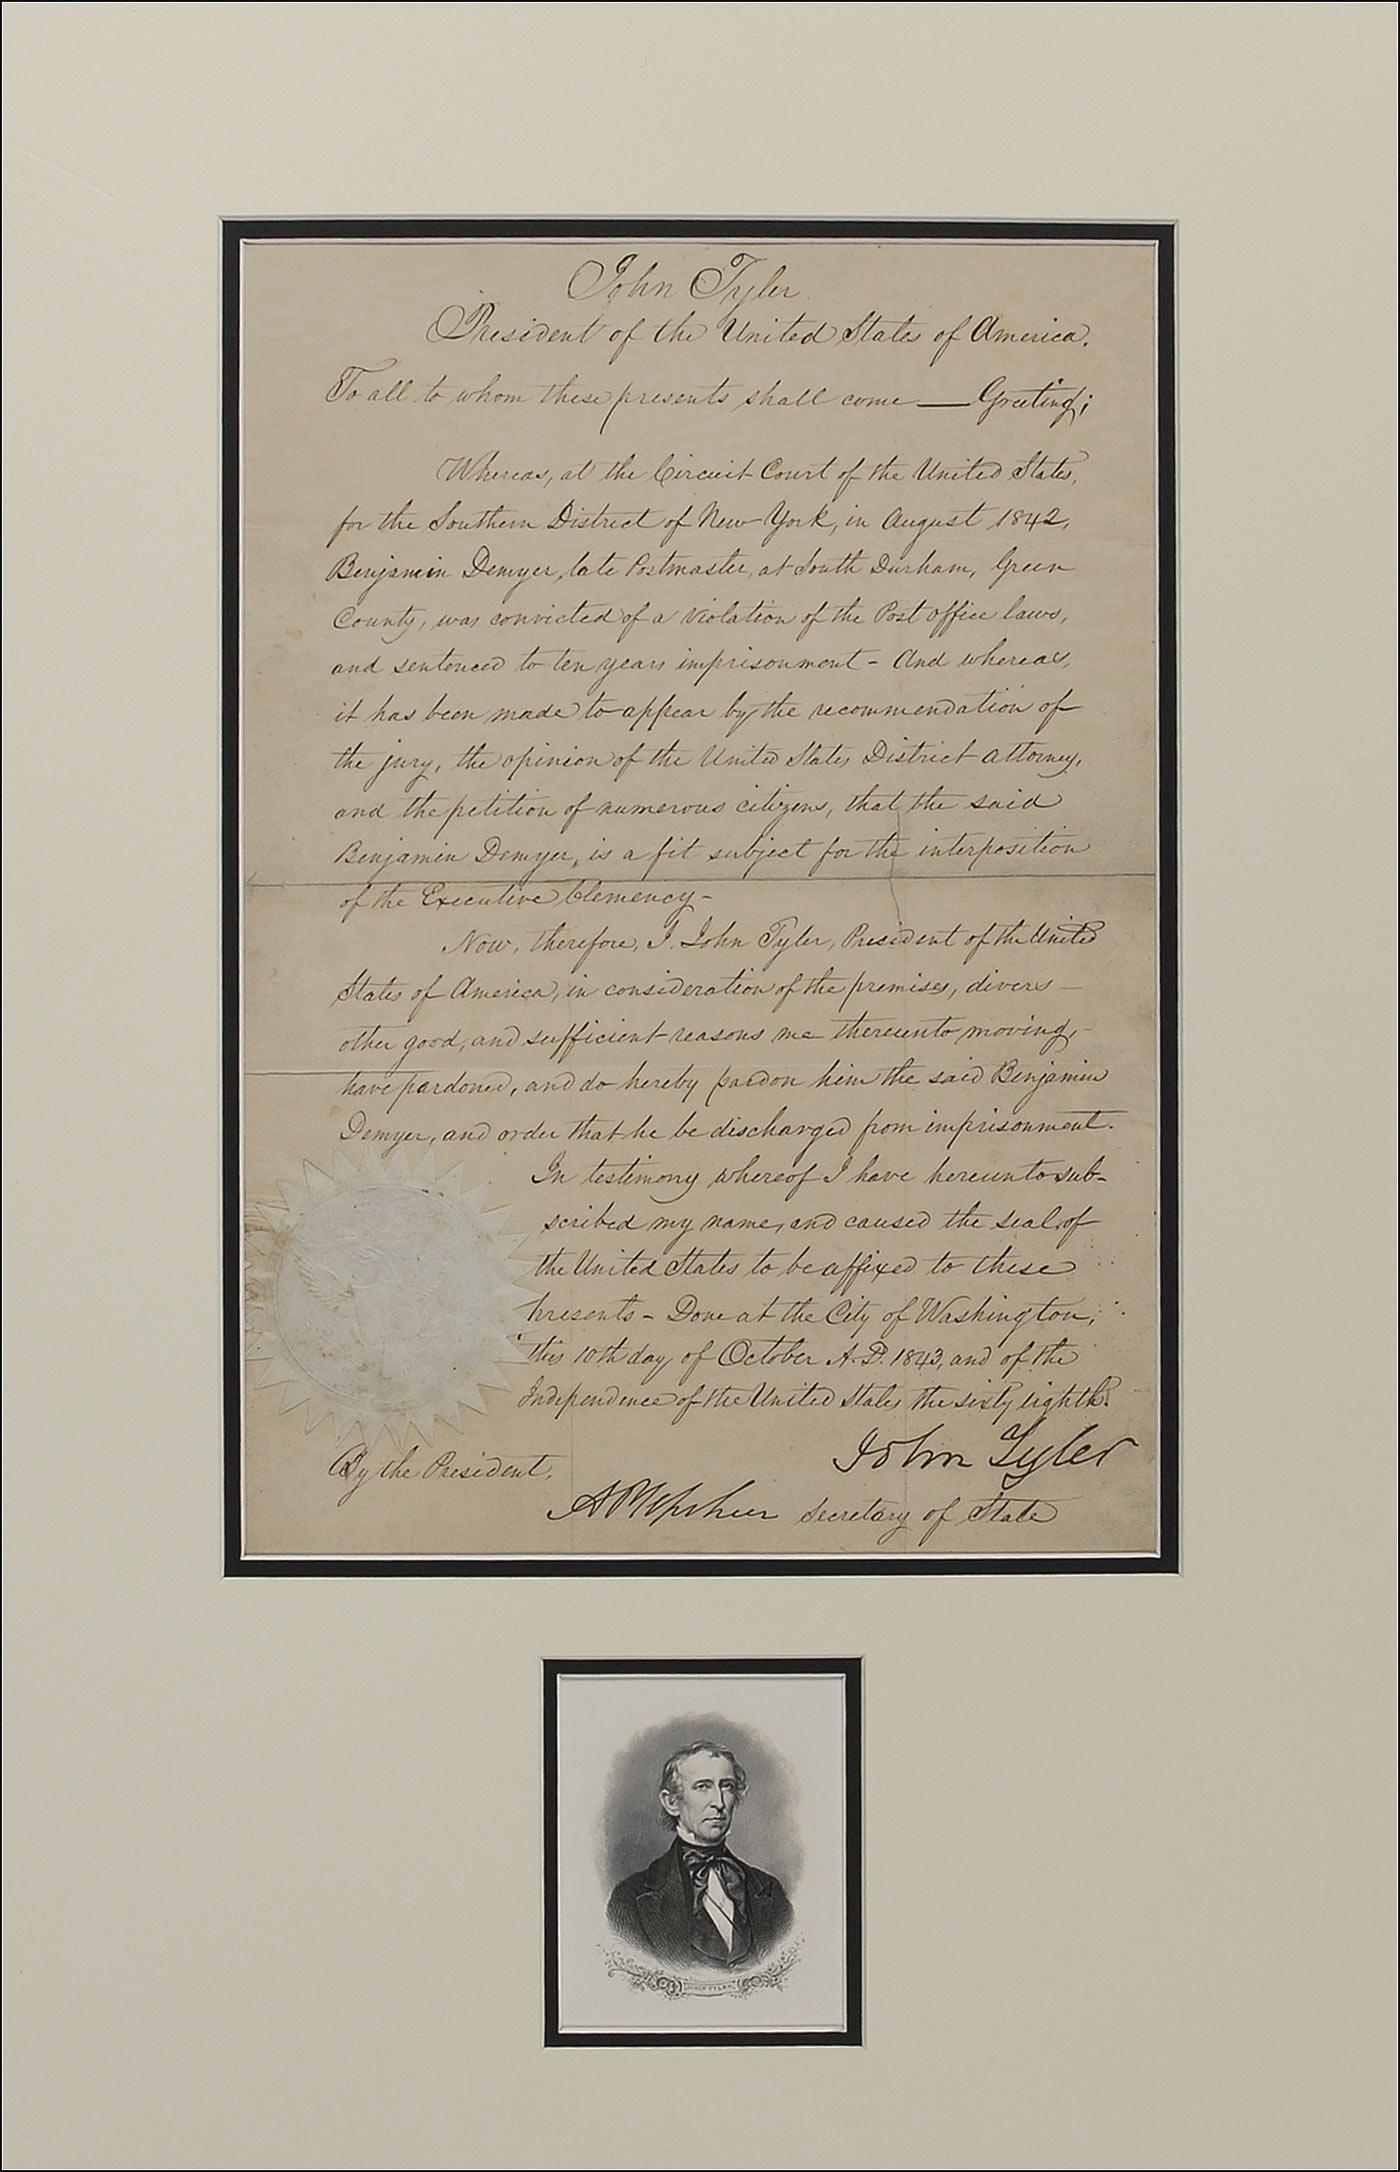 John Tyler
President of the United States of America.
To all to whom these presents shall come — Greeting;
Whereas, at the Circuit Court of the United States,
for the Southern District of New York, in August 1842,
Benjamin Demyer, late Postmaster, at South Durham, Green
County, was convicted of a violation of the Post Office laws,
and sentenced to ten years imprisonment - And whereas,
it has been made to appear by the recommendation of
the jury, the opinion of the United States District attorney,
and the petition of numerous citizens, that the said
Benjamin Demyer, is a fit subject for the interposition
of the Executive Clemency -
Now, therefore, I, John Tyler, President of the United
States of America, in consideration of the premises, divers -
other good, and sufficient reasons me thereunto moving, -
have pardoned, and do hereby pardon him the said Benjamin
Demyer, and order that he be discharged from imprisonment.
In testimony whereof I have hereunto sub-
scribed my name, and caused the seal of
the United States to be affixed to these
presents - Done at the City of Washington,
this 10th day of October A.D. 1843, and of the
Independence of the United States the sixty eighth.
John Tyler
By the President.
A P Upshur Secretary of State
JOHN TYLER